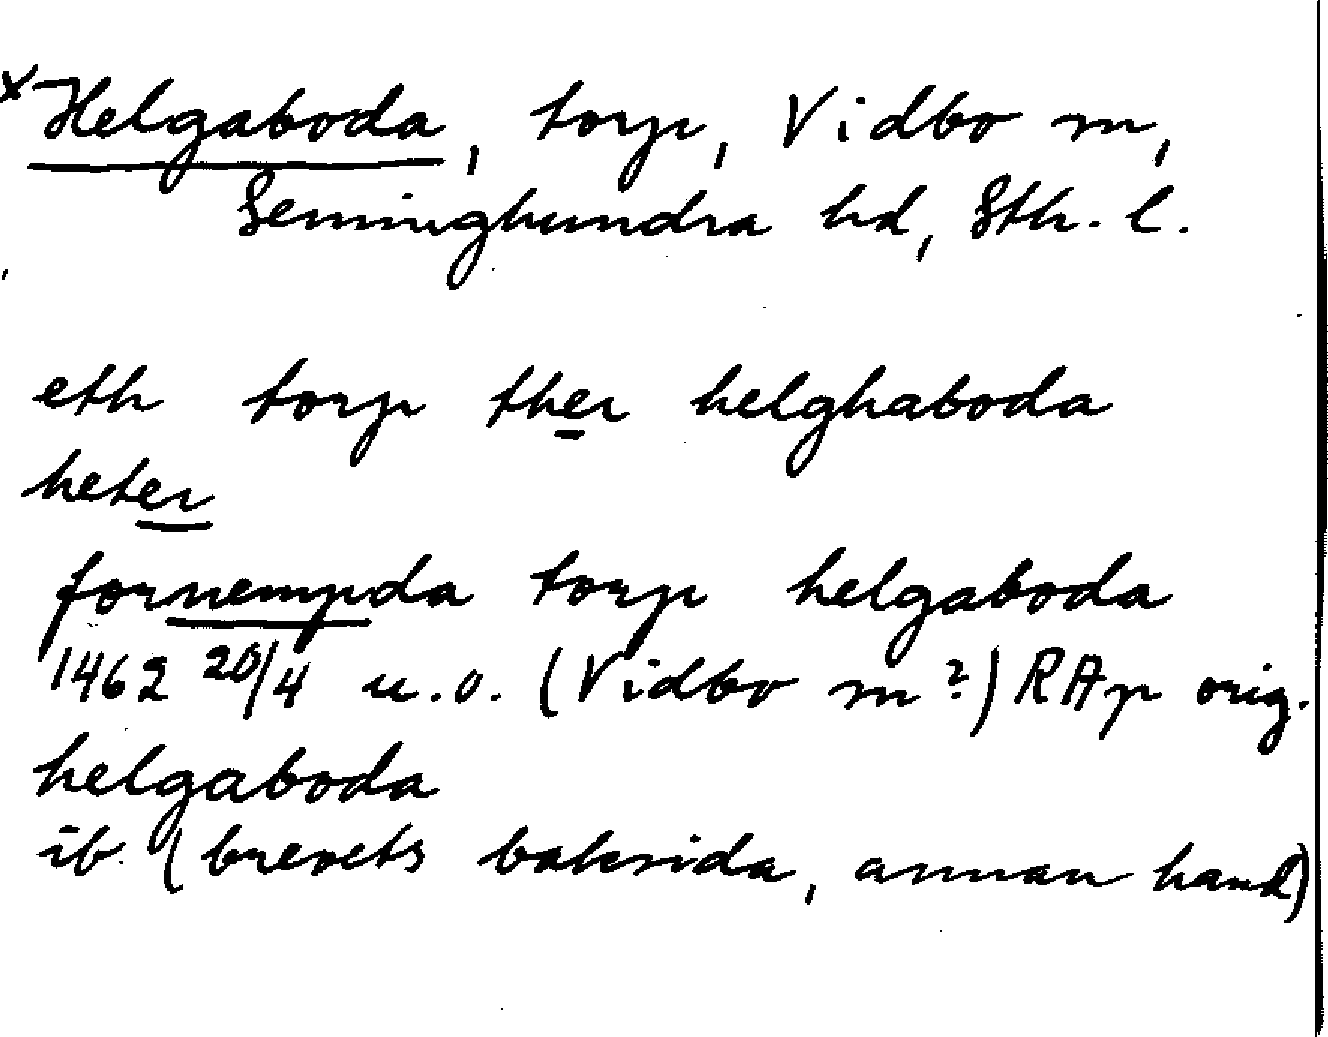 x Helgaboda, torp, Vidbo sn,
Seminghundra hd, Sth. l.
eth torp ther helghaboda
heter
fornempda torp helgaboda
1462 20/4 u.o. (Vidbo sn?) RAp orig.
helgaboda
ib. (brevets baksida, annan hand)